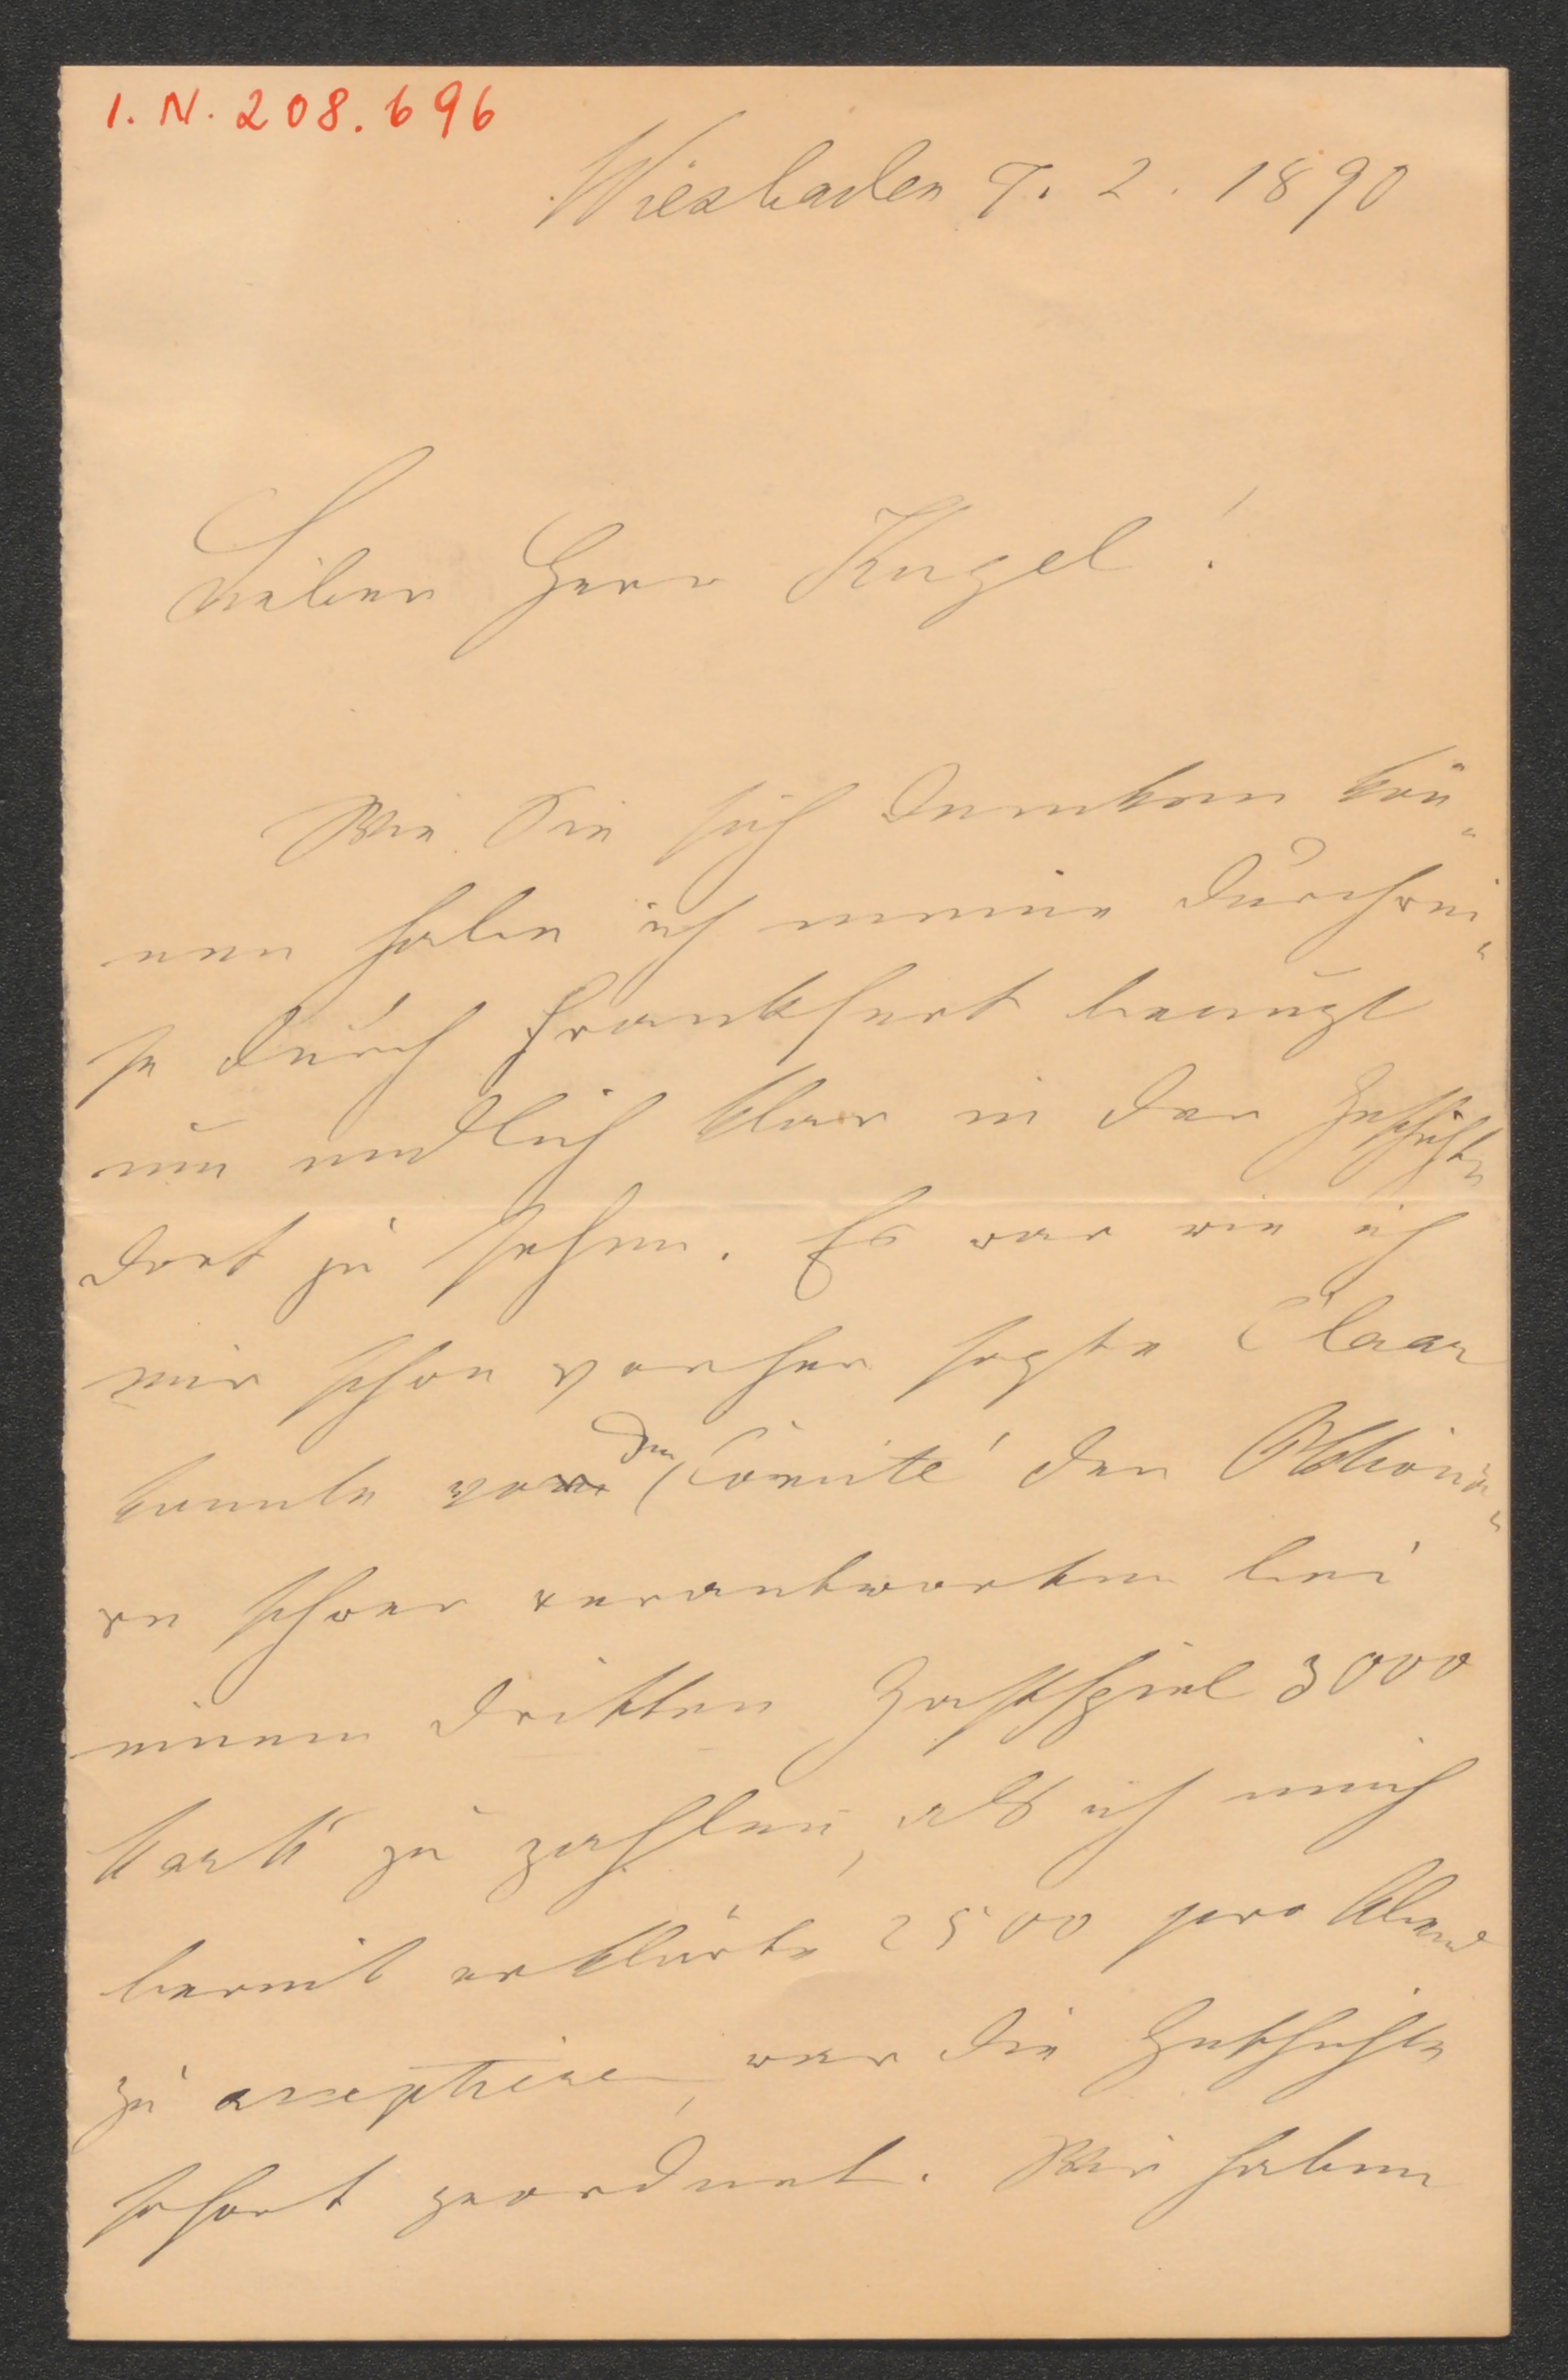 I. N. 208.696
Wiesbaden 7. 2. 1890
Lieber Herr Kugel!
Wie Sie sich denken kön-
nen habe ich meine Durchrei-
se durch Frankfurt benuzt
um endlich klar in der Geschichte
dort zu sehen. Es war wie ich
mir schon vorher sagte Claar
konnte vor dem Comité der Aktionä-
re schwer verantworten bei
einem dritten Gastspiel 3000
Mark zu zahlen, als ich mich
bereit erklärte 2500 pro Abend
zu acceptiren, war die Geschichte
sofort geordnet. Wir haben